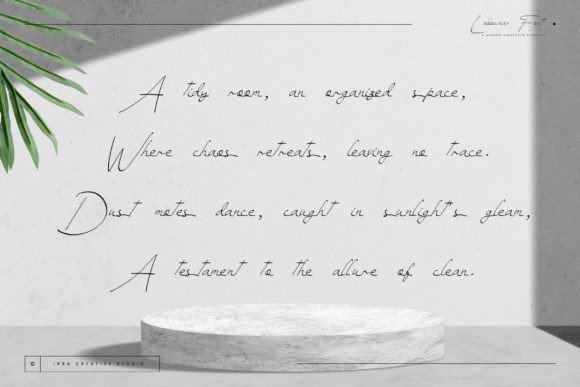 A MODERN SIGNATURE TYPEFACE
A tidy room, an organized space,
Where chaos retreats, leaving no trace.
Dust motes dance, caught in sunlight's gleam,
A testament to the allure of clean.
© IBRA CREATIVE STUDIO